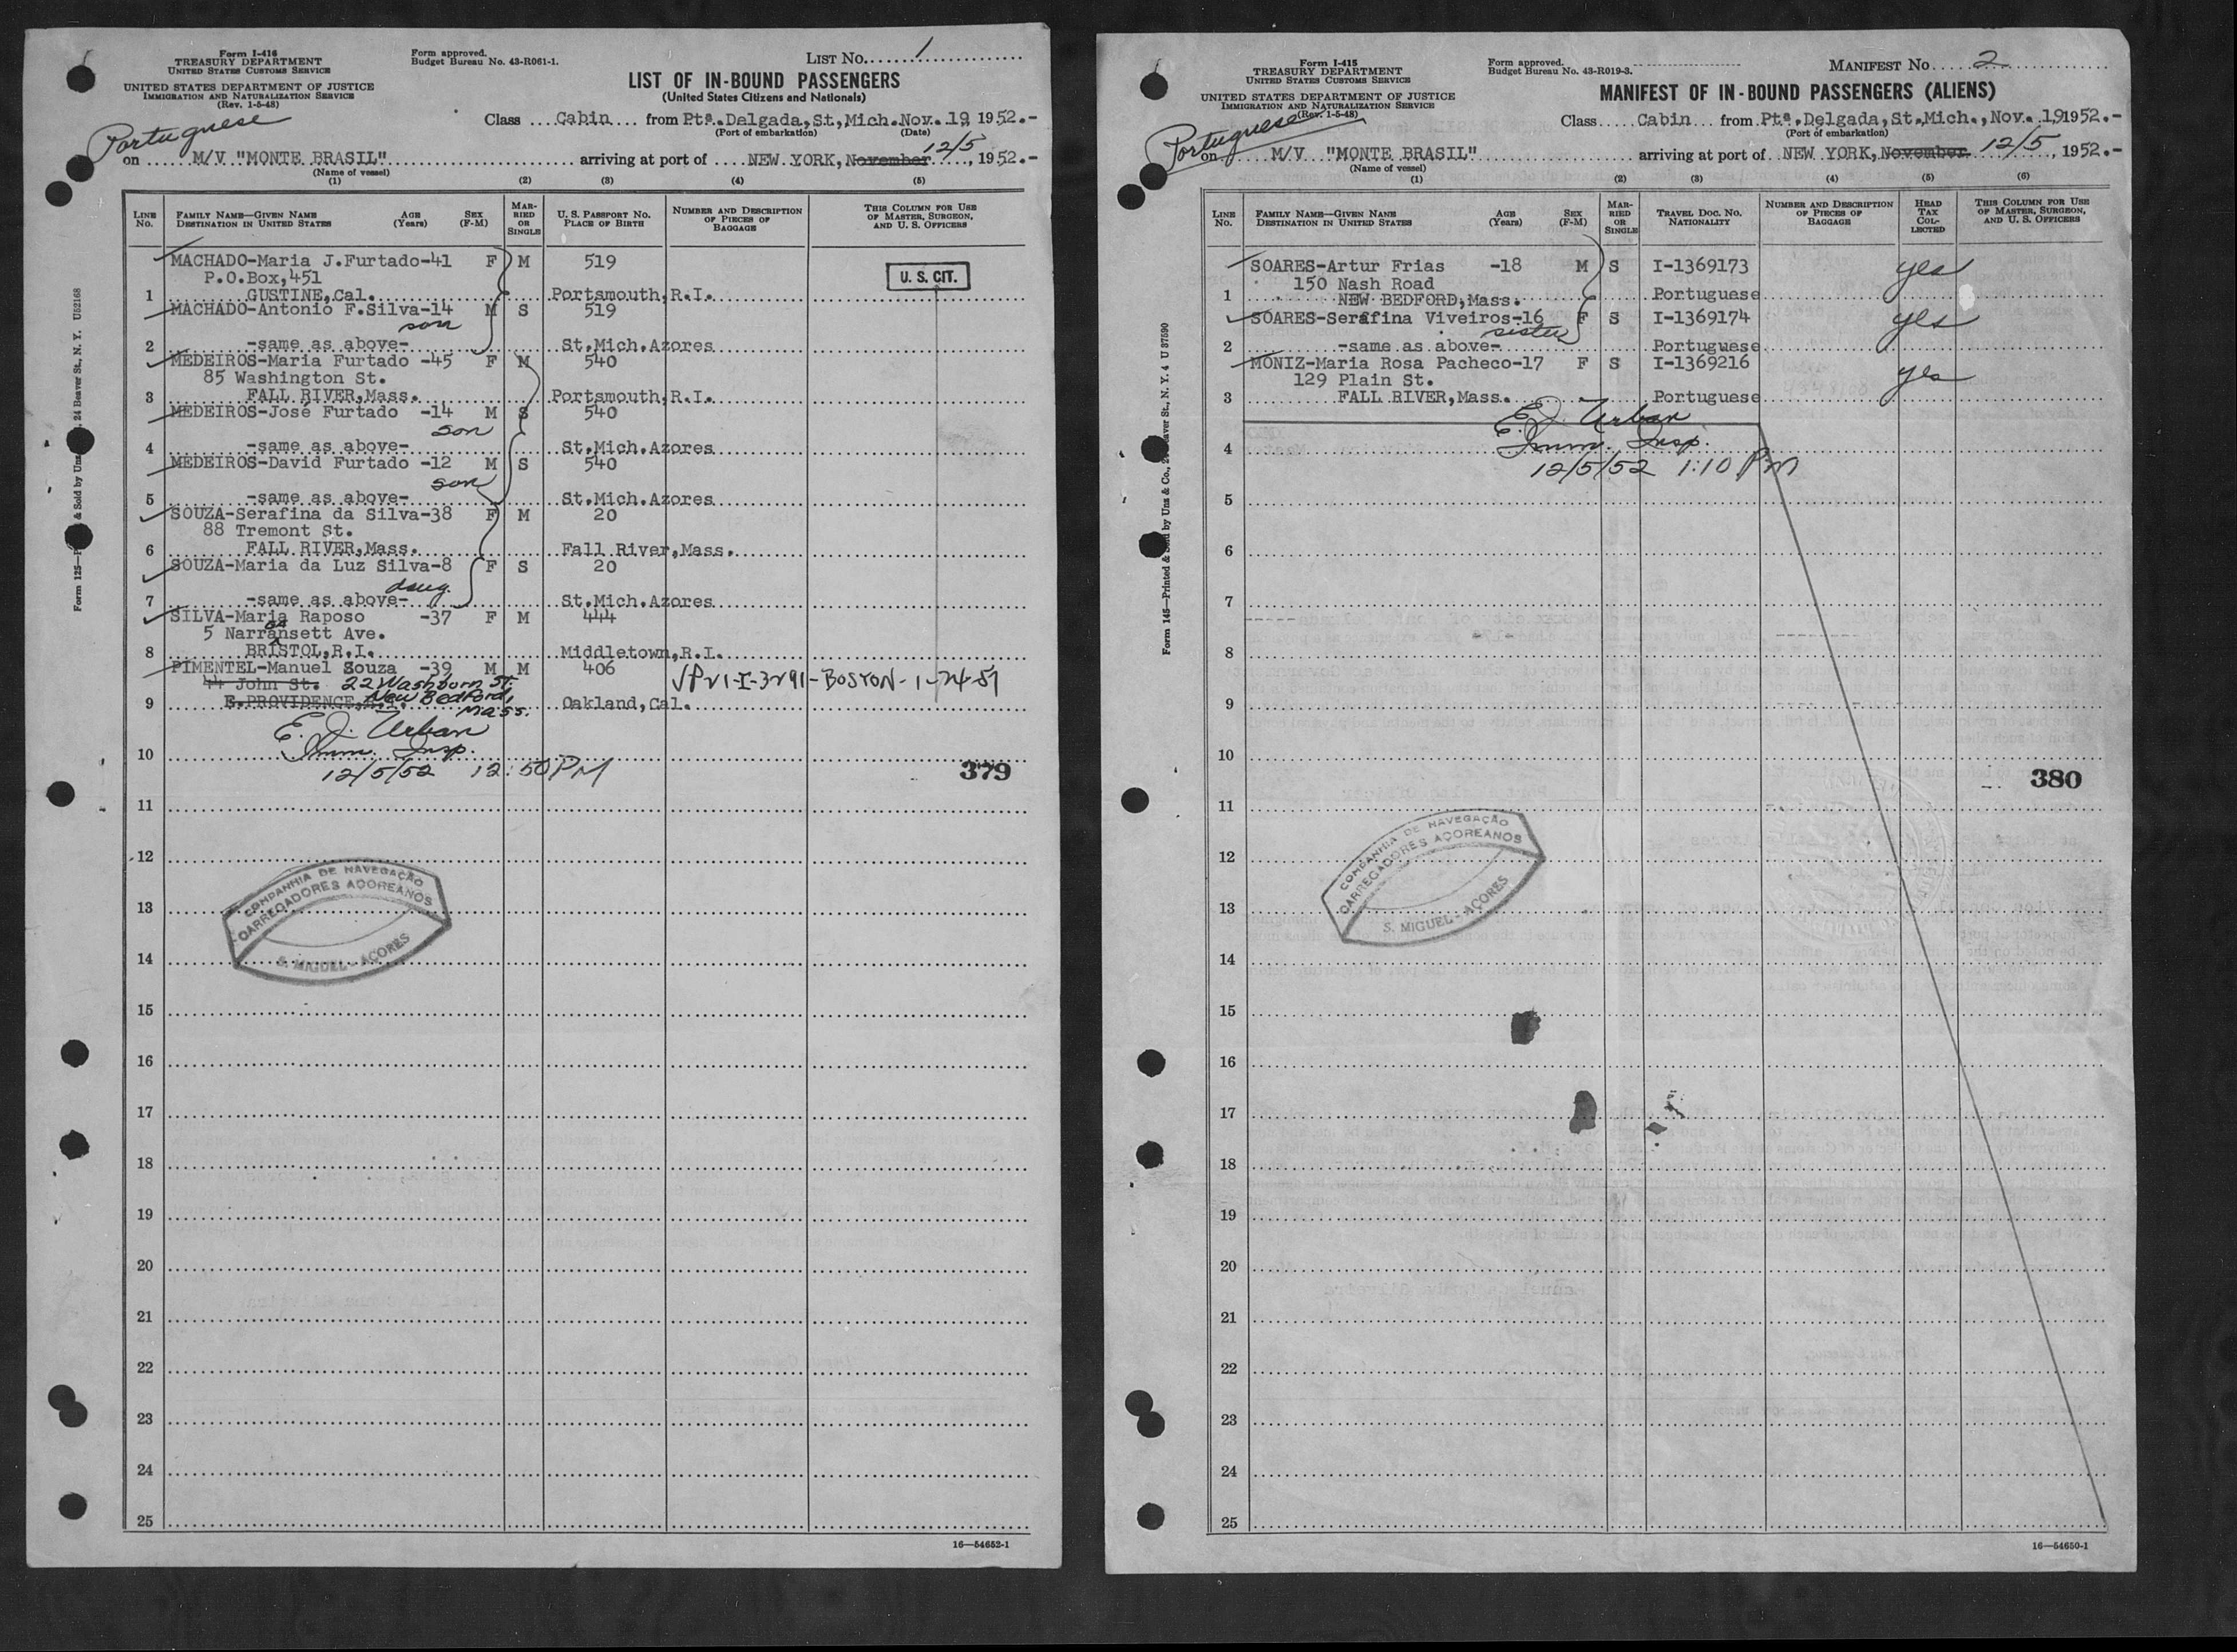 Form I-416
TREASURY DEPARTMENT
UNITED STATES CUSTOMS SERVICE
UNITED STATES DEPARTMENT OF JUSTICE
IMMIGRATION AND NATURALIZATION SERVICE
(Rev. 1-5-48)
Form approved.
Budget Bureau No. 43-R061-1.
LIST No. 1
LIST OF IN-BOUND PASSENGERS
(United States Citizens and Nationals)
Class Cabin from Pta. Delgada, St, Mich. Nov. 19 1952.-
(Port of embarkation) (Date)
Portuguese
12/5
on M/V "MONTE BRASIL" arriving at port of NEW YORK, November, 1952.-
(Name of vessel)
(1) (2) (3) (4) (5)
LINE No.
FAMILY NAME—GIVEN NAME
DESTINATION IN UNITED STATES
AGE (Years)
SEX (F-M)
MARRIED OR SINGLE
U. S. PASSPORT No.
PLACE OF BIRTH
NUMBER AND DESCRIPTION OF PIECES OF BAGGAGE
THIS COLUMN FOR USE OF MASTER, SURGEON, AND U. S. OFFICERS
MACHADO-Maria J.Furtado-41 F M 519
U. S. CIT.
P.O.Box,451
1 GUSTINE,Cal. Portsmouth,R.I.
MACHADO-Antonio F.Silva-14 M S 519
son
2 -same as above- St.Mich.Azores
MEDEIROS-Maria Furtado -45 F M 540
85 Washington St.
3 FALL RIVER,Mass. Portsmouth,R.I.
MEDEIROS-José Furtado -14 M S 540
son
4 -same as above- St.Mich.Azores
MEDEIROS-David Furtado -12 M S 540
son
5 -same as above- St.Mich.Azores
SOUZA-Serafina da Silva-38 F M 20
88 Tremont St.
6 FALL RIVER,Mass. Fall River,Mass.
SOUZA-Maria da Luz Silva-8 F S 20
daug.
7 -same as above- St.Mich.Azores
SILVA-Maria Raposo -37 F M 444
5 Narransett Ave.
ga
8 BRISTOL,R.I. Middletown,R.I.
PIMENTEL-Manuel Souza -39 M M 406
44 John St. 22 Washburn St.
9 E.PROVIDENCE, New Bedford, Mass. Oakland,Cal.
E. J. Urban
Imm. Insp.
10
12/5/52 12:50 PM
379
11
12
COMPANHIA DE NAVEGAÇÃO
CARREGADORES AÇOREANOS
S. MIGUEL - AÇORES
13
14
15
16
17
18
19
20
21
22
23
24
25
16—54652-1
Form I-415
TREASURY DEPARTMENT
UNITED STATES CUSTOMS SERVICE
UNITED STATES DEPARTMENT OF JUSTICE
IMMIGRATION AND NATURALIZATION SERVICE
(Rev. 1-5-48)
Form approved.
Budget Bureau No. 43-R019-3.
MANIFEST No 2
MANIFEST OF IN-BOUND PASSENGERS (ALIENS)
Class Cabin from Pta. Delgada, St. Mich., Nov. 191952.-
(Port of embarkation)
Portuguese
on M/V "MONTE BRASIL" arriving at port of NEW YORK, November 12/5, 1952.-
(Name of vessel)
(1) (2) (3) (4) (5) (6)
LINE No.
FAMILY NAME—GIVEN NAME
DESTINATION IN UNITED STATES
AGE (Years)
SEX (F-M)
MARRIED OR SINGLE
TRAVEL DOC. No.
NATIONALITY
NUMBER AND DESCRIPTION OF PIECES OF BAGGAGE
HEAD TAX COLLECTED
THIS COLUMN FOR USE OF MASTER, SURGEON, AND U. S. OFFICERS
SOARES-Artur Frias -18 M S I-1369173 yes
150 Nash Road
1 NEW BEDFORD,Mass. Portuguese
SOARES-Serafina Viveiros-16 F S I-1369174 yes
sister
2 -same as above- Portuguese
MONIZ-Maria Rosa Pacheco-17 F S I-1369216 yes
129 Plain St.
3 FALL RIVER,Mass. Portuguese
E. J. Urban
4 Imm. Insp.
12/5/52 1:10 PM
5
6
7
8
9
10
380
11
12
COMPANHIA DE NAVEGAÇÃO
CARREGADORES AÇOREANOS
S. MIGUEL - AÇORES
13
14
15
16
17
18
19
20
21
22
23
24
25
16—54650-1